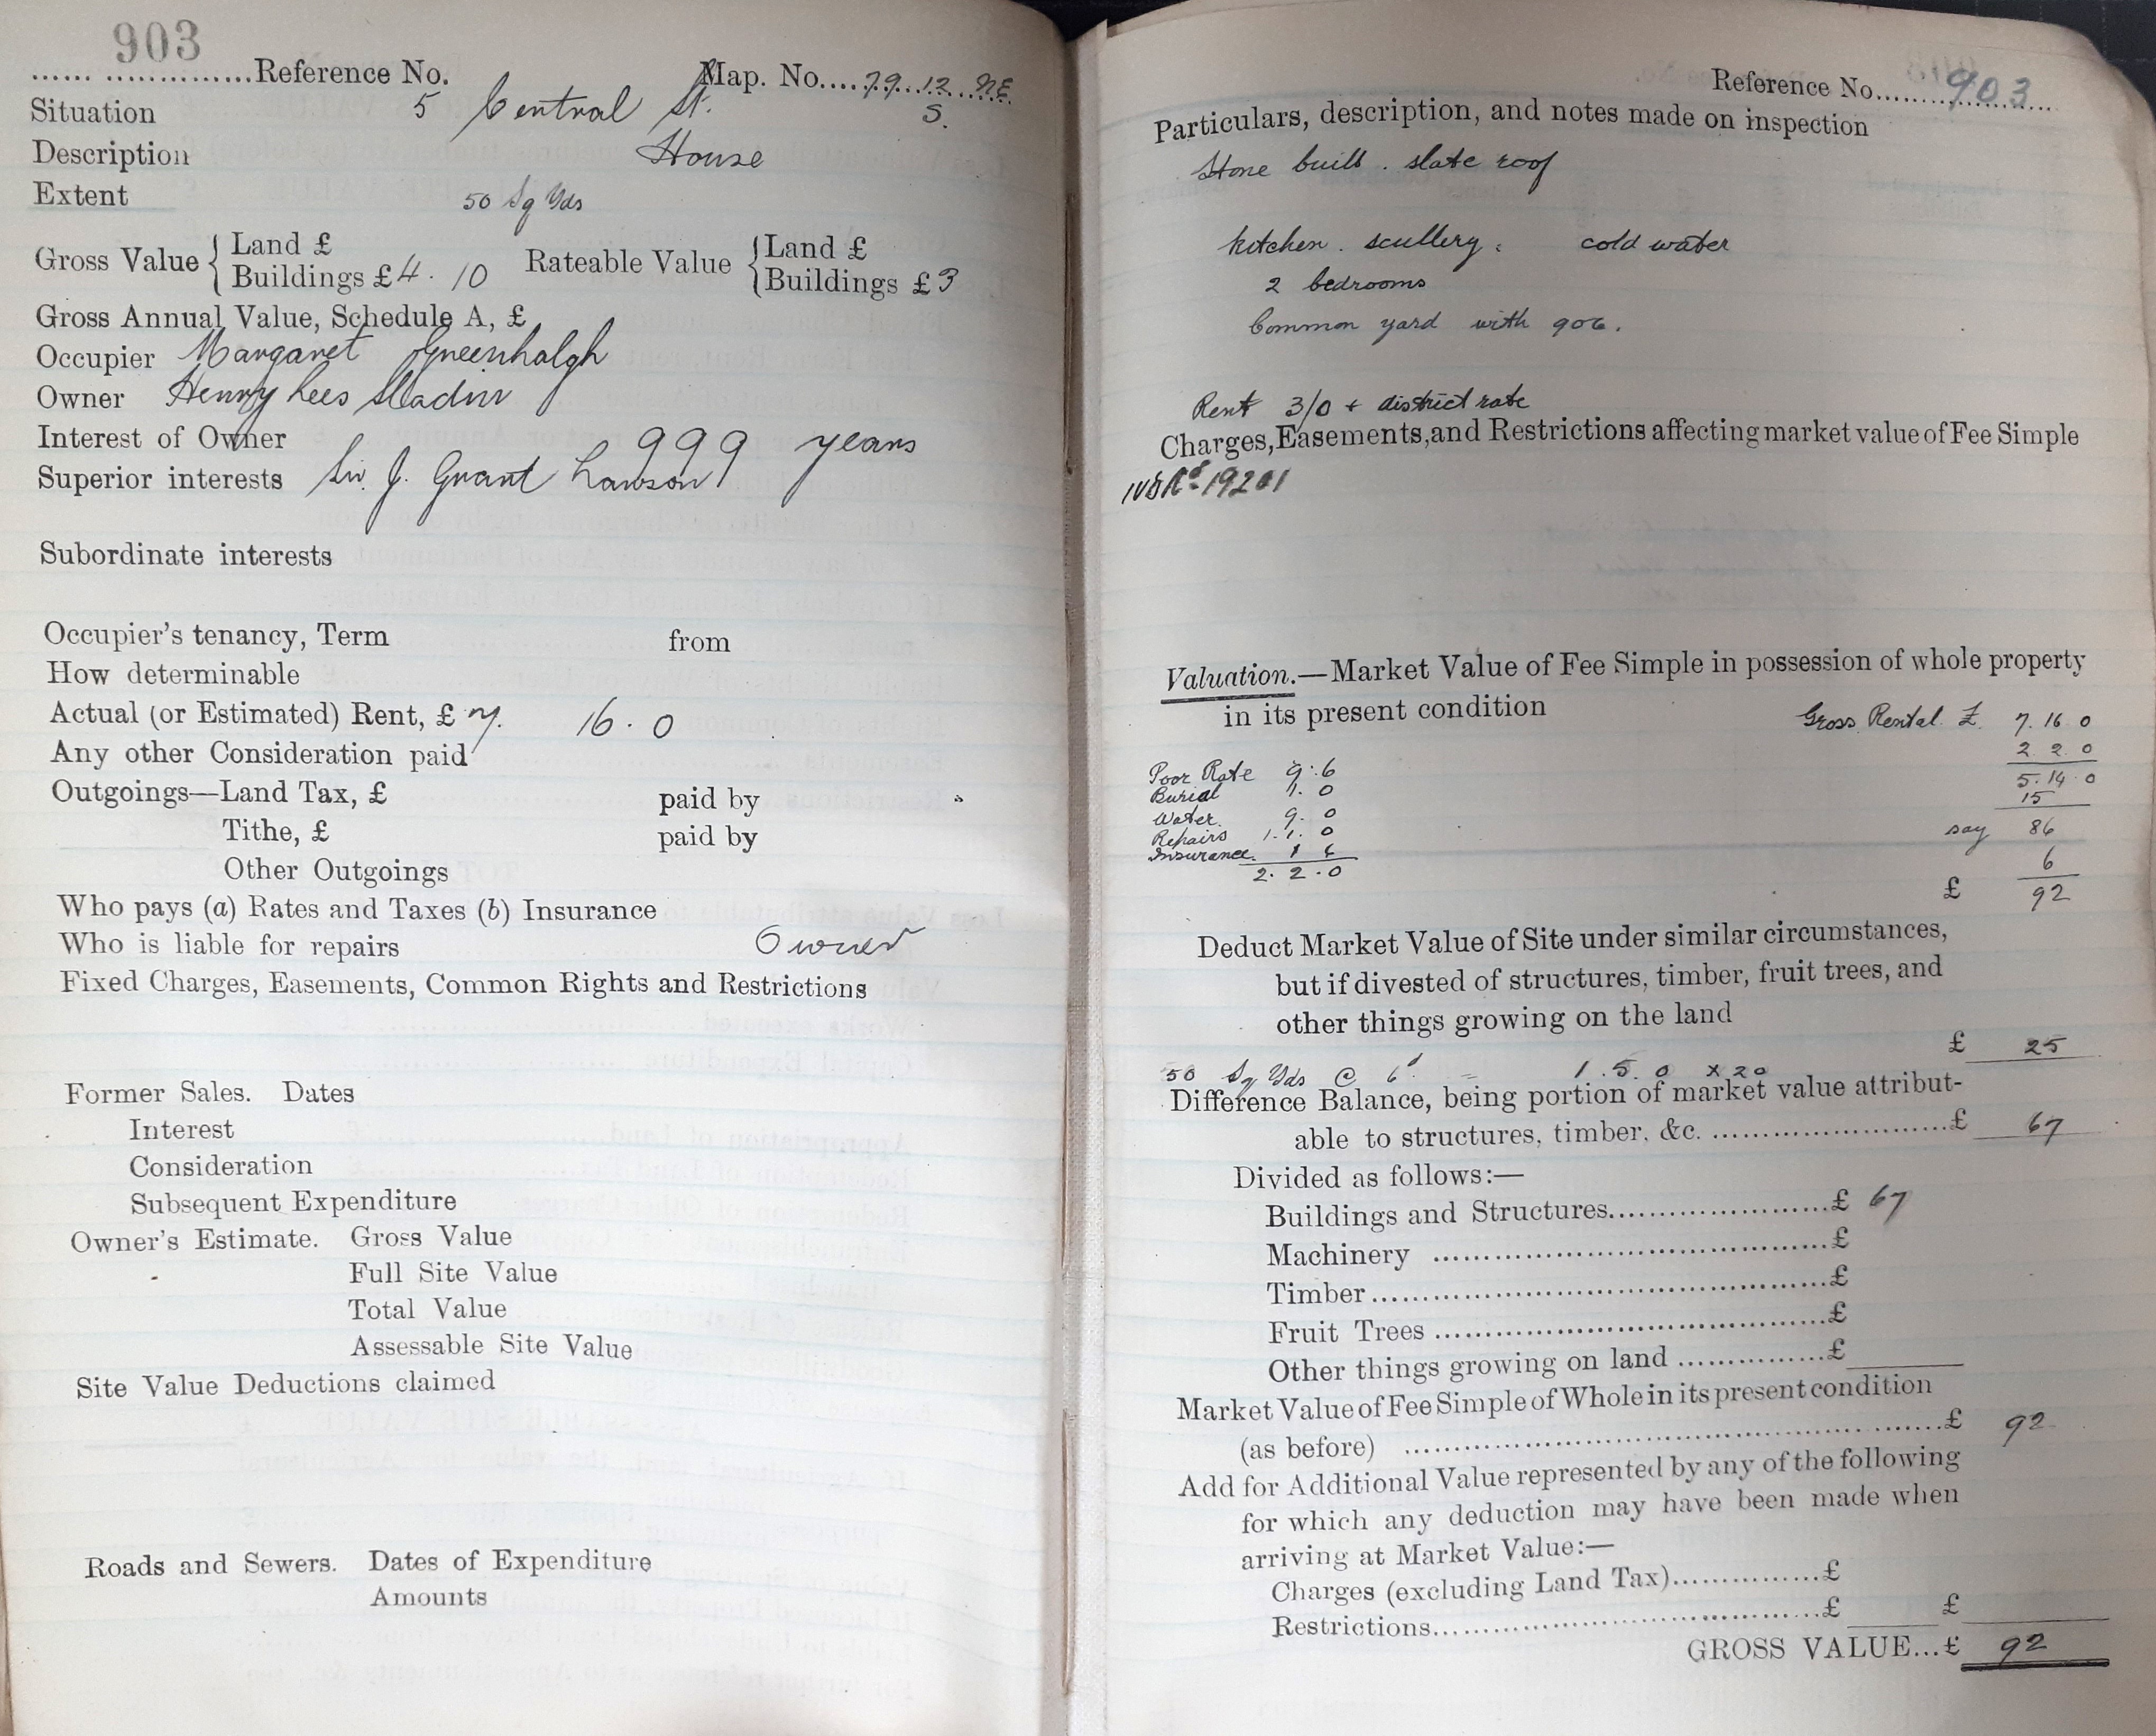 903
Reference No. Map. No. 79.12 NE
Situation 5 Central St. S.
Description House
Extent 50 Sq Yds
Gross Value { Land £
Buildings £4. 10 Rateable Value { Land £
Buildings £3
Gross Annual Value, Schedule A, £
Occupier Margaret Greenhalgh
Owner Henry Lees
Interest of Owner 999 years
Superior interests Sir J. Grant Lawson
Subordinate interests
Occupier's tenancy, Term from
How determinable
Actual (or Estimated) Rent, £ 7. 16. 0
Any other Consideration paid
Outgoings—Land Tax, £ paid by
Tithe, £ paid by
Other Outgoings
Who pays (a) Rates and Taxes (b) Insurance
Who is liable for repairs Owner
Fixed Charges, Easements, Common Rights and Restrictions
Former Sales. Dates
Interest
Consideration
Subsequent Expenditure
Owner's Estimate. Gross Value
Full Site Value
Total Value
Assessable Site Value
Site Value Deductions claimed
Roads and Sewers. Dates of Expenditure
Amounts
Reference No. 903
Particulars, description, and notes made on inspection
Stone built. slate roof
kitchen. scullery. cold water
2 bedrooms
Common yard with 906.
Rent 3/0 + district rate
Charges, Easements, and Restrictions affecting market value of Fee Simple
Valuation.—Market Value of Fee Simple in possession of whole property
in its present condition Gross Rental £ 7. 16. 0
2 2 0
5. 14. 0
15
say 86
6
£ 92
Poor Rate 9. 6
Burial 1. 0
Water 9. 0
Repairs 1. 1. 0
Insurance 1 6
2. 2. 0
Deduct Market Value of Site under similar circumstances,
but if divested of structures, timber, fruit trees, and
other things growing on the land
£ 25
50 Sq Yds @ 6d = 1. 5. 0 x 20
Difference Balance, being portion of market value attribut-
able to structures, timber, &c. £ 67
Divided as follows:—
Buildings and Structures £ 67
Machinery £
Timber £
Fruit Trees £
Other things growing on land £
Market Value of Fee Simple of Whole in its present condition
(as before) £ 92
Add for Additional Value represented by any of the following
for which any deduction may have been made when
arriving at Market Value:—
Charges (excluding Land Tax) £
Restrictions £ £
GROSS VALUE...£ 92